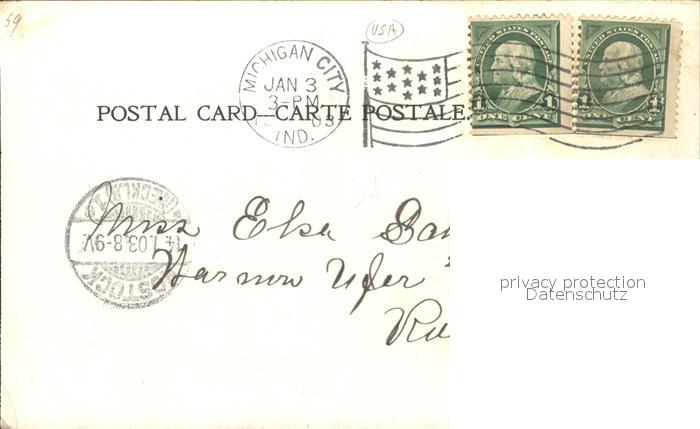 59
(USA)
UNITED STATES POSTAGE
1 1
ONE CENT
UNITED STATES POSTAGE
1 1
ONE CENT
MICHIGAN CITY
JAN 3
3-PM
03
IND.
POSTAL CARD—CARTE POSTALE.
Miss Elsa
Warnow Ufer
14.1.03.8-9V.
privacy protection
Datenschutz